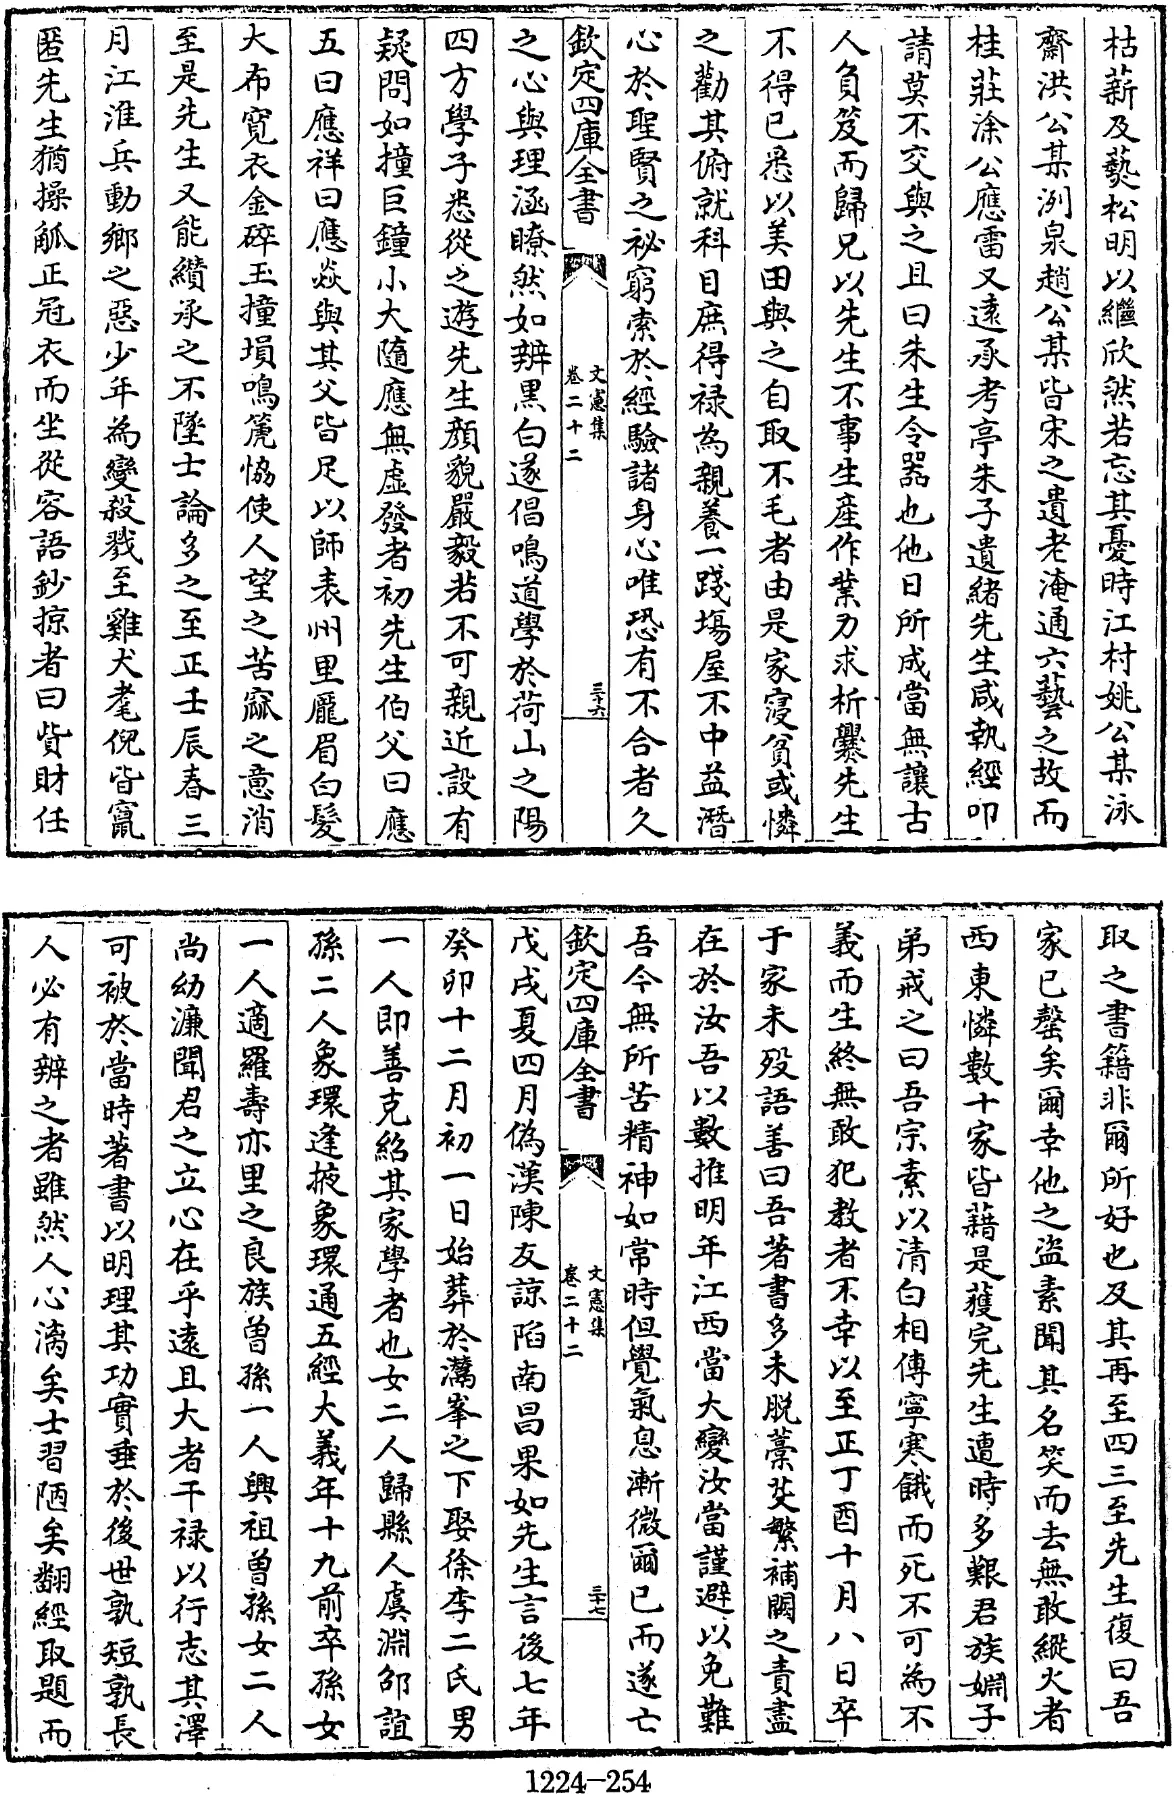 枯薪及藝松明以繼欣然若忘其憂時江村姚公某泳
齋洪公某洌泉趙公某皆宋之遺老淹通六藝之故而
桂莊涂公應雷又遠承考亭朱子遺緒先生咸執經叩
請莫不交與之且曰朱生令器也他日所成當無讓古
人負笈而歸兄以先生不事生產作業力求析爨先生
不得已悉以美田與之自取不毛者由是家寖貧或憐
之勸其俯就科目庶得祿為親養一踐塲屋不中益潛
心於聖賢之祕窮索於經驗諸身心唯恐有不合者久
欽定四庫全書
文憲集
卷二十二
三十六
之心與理涵瞭然如辨黑白遂倡鳴道學於荷山之陽
四方學子悉從之遊先生顔貌嚴毅若不可親近設有
疑問如撞巨鐘小大隨應無虛發者初先生伯父曰應
五曰應祥曰應焱與其父皆足以師表州里龎眉白髮
大布寛衣金碎玉撞塤鳴箎恊使人望之苦窳之意消
至是先生又能纘承之不墜士論多之至正壬辰春三
月江淮兵動鄉之惡少年為變殺戮至雞犬耄倪皆竄
匿先生猶操觚正冠衣而坐從容語鈔掠者曰貲財任
取之書籍非爾所好也及其再至四三至先生復曰吾
家已罄矣爾幸他之盜素聞其名笑而去無敢縱火者
西東憐數十家皆藉是獲完先生遭時多艱君族婣子
弟戒之曰吾宗素以清白相傳寧寒餓而死不可為不
義而生終無敢犯教者不幸以至正丁酉十月八日卒
于家未歿語善曰吾著書多未脫藁芟繁補闕之責盡
在於汝吾以數推明年江西當大變汝當謹避以免難
吾今無所苦精神如常時但覺氣息漸微爾已而遂亡
欽定四庫全書
文憲集
卷二十二
三十七
戊戌夏四月偽漢陳友諒陷南昌果如先生言後七年
癸卯十二月初一日始葬於灊峯之下娶徐李二氏男
一人即善克紹其家學者也女二人歸縣人虞淵邵誼
孫二人象環逢掖象環通五經大義年十九前卒孫女
一人適羅壽亦里之良族曾孫一人興祖曾孫女二人
尚幼濂聞君之立心在乎遠且大者干祿以行志其澤
可被於當時著書以明理其功實垂於後世孰短孰長
人必有辨之者雖然人心漓矣士習陋矣翻經取題而
1224-254